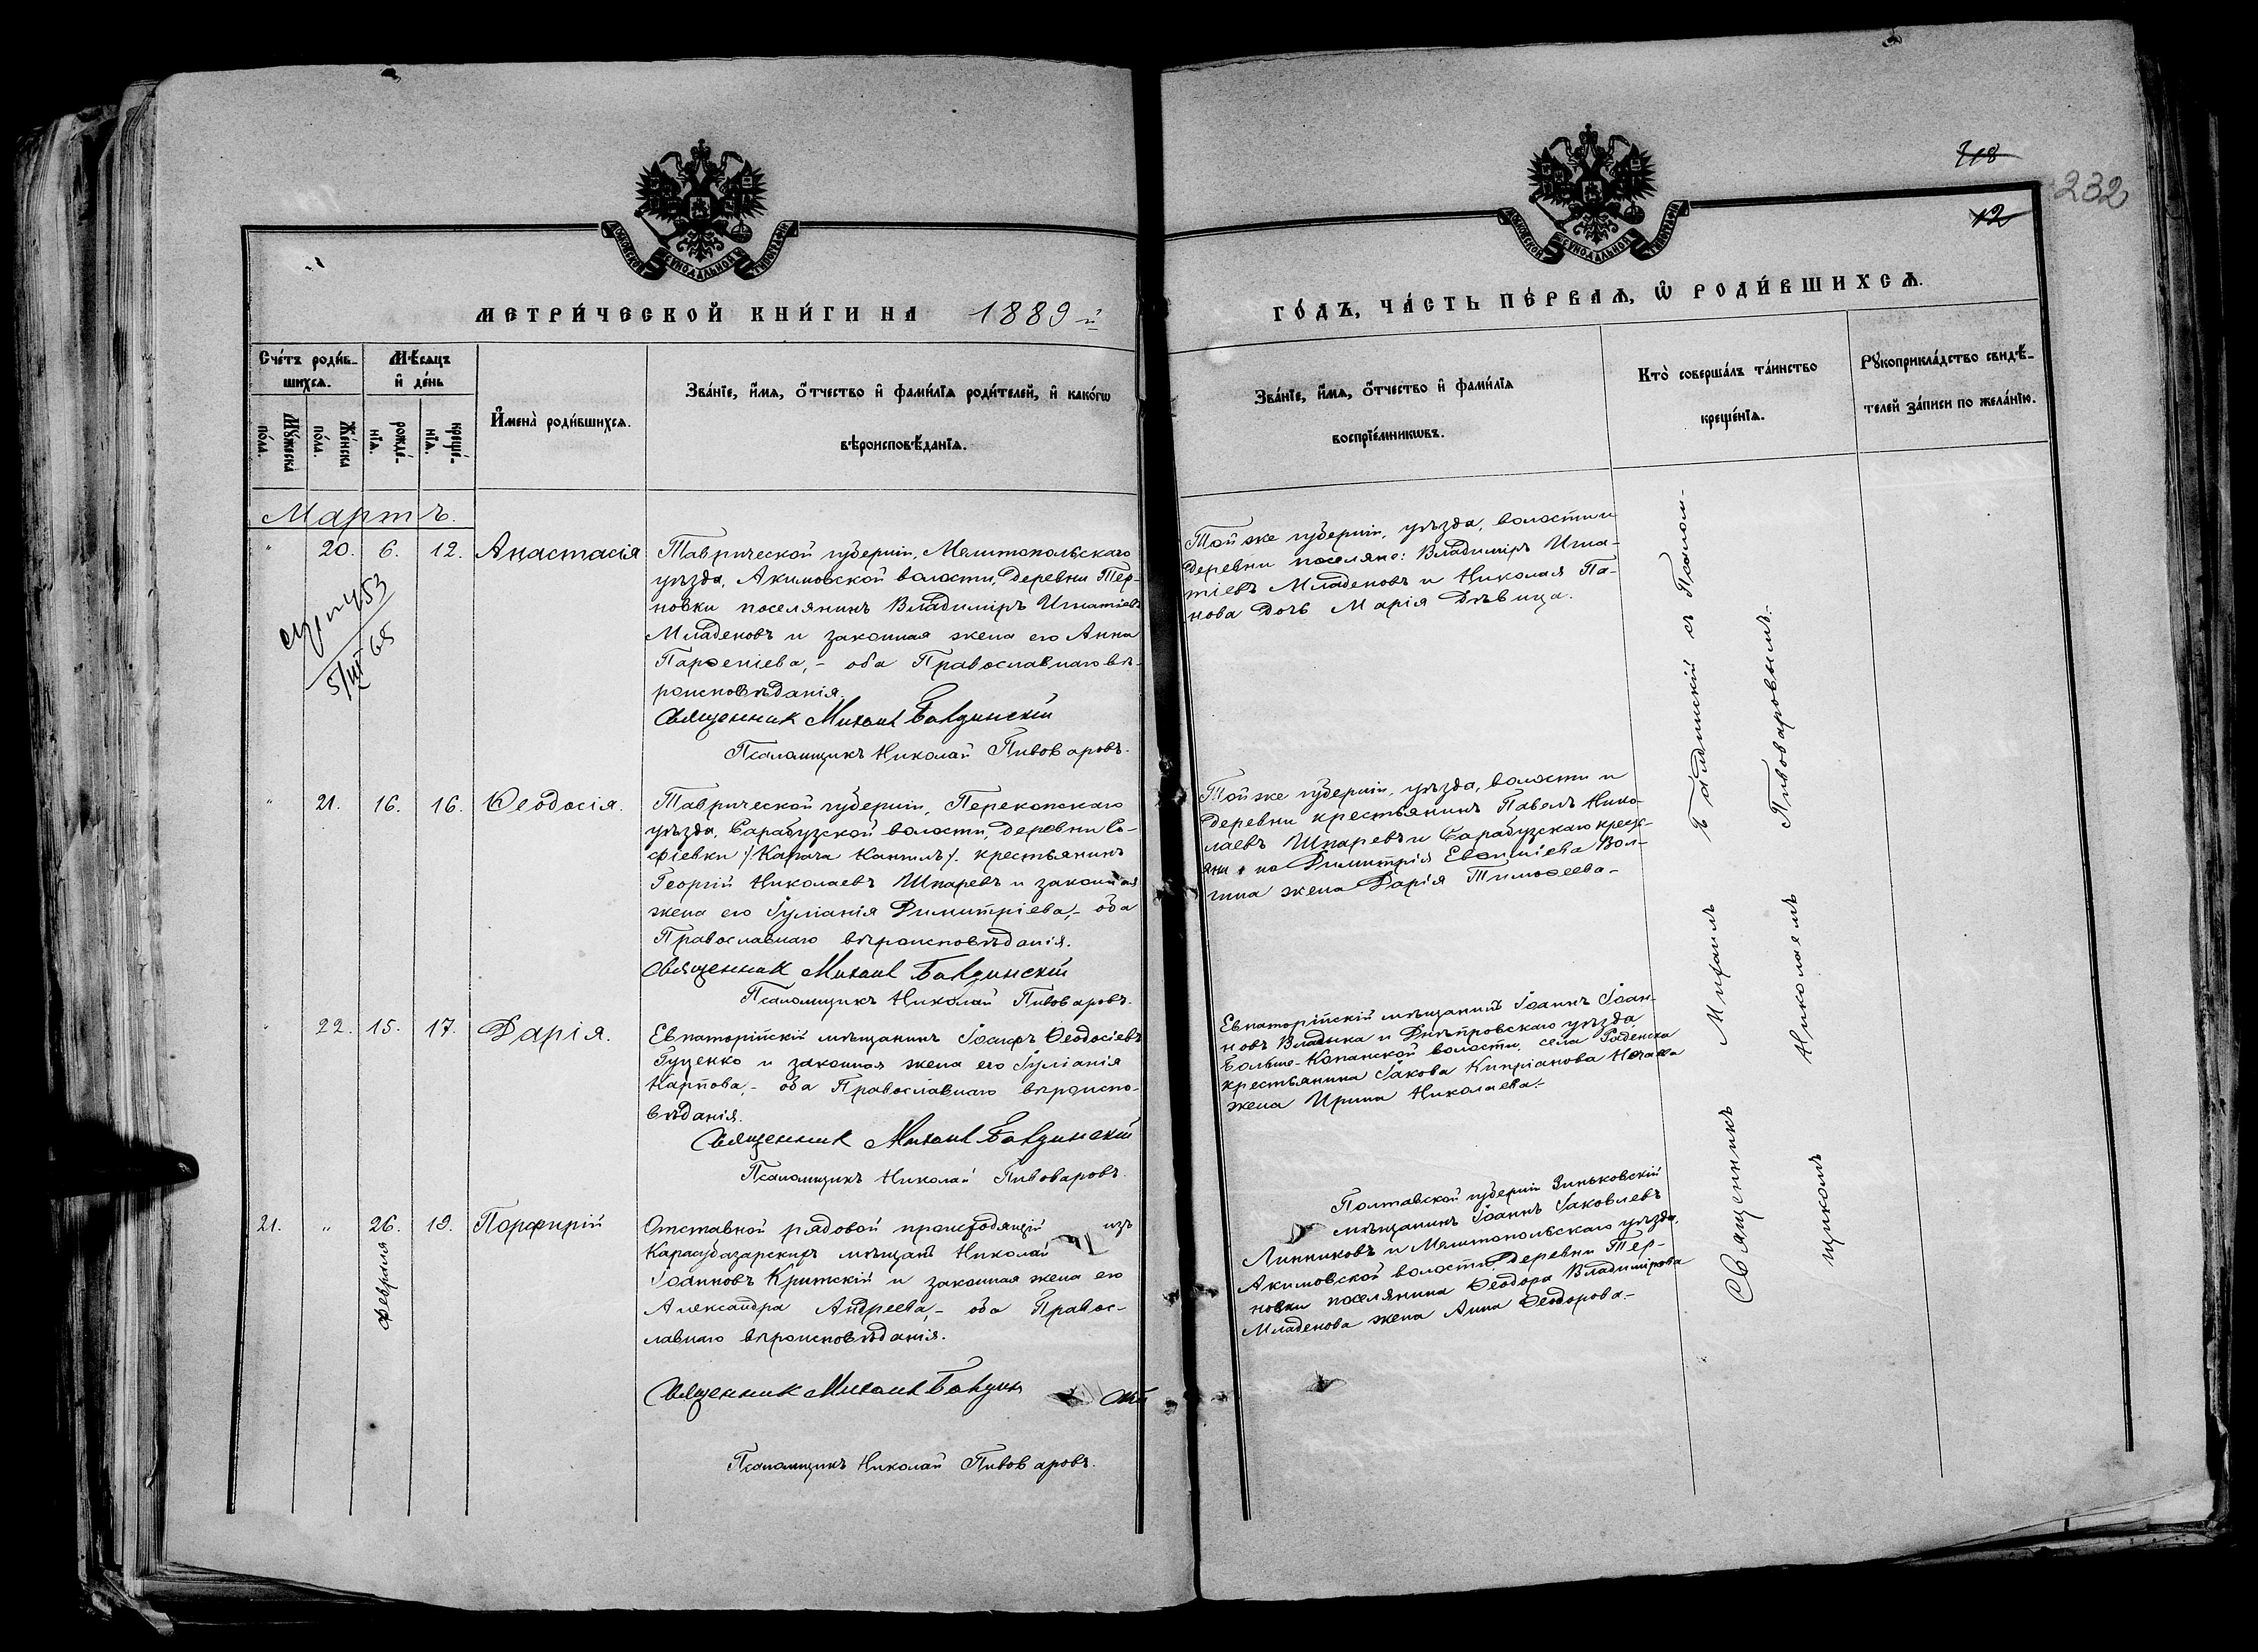 718
232
12
МОСКОВСКОЙ СѴНОДАЛЬНОЙ ТИПОГРАФІИ
МОСКОВСКОЙ СѴНОДАЛЬНОЙ ТИПОГРАФІИ
МЕТРИ́ЧЕСКОЙ КНИ́ГИ НА 1889 й
ГО́ДЪ, ЧА́СТЬ ПЕ́РВАѦ, Ѡ҆ РОДИ́ВШИХСѦ.
Сче́тъ роди́в-
шихсѧ.
Мѣ́сѧцъ
и҆ де́нь
Мꙋ́жеска
по́ла.
Же́нска
по́ла.
рожде́-
нїѧ.
креще́-
нїѧ.
И҆мена̀ роди́вшихсѧ.
Зва́нїе, и҆́мѧ, ѻ҆́тчество и҆ фами́лїѧ роди́телей, и҆ како́гѡ
вѣроисповѣ́данїѧ.
Зва́нїе, и҆́мѧ, ѻ҆́тчество и҆ фами́лїѧ
воспрїе́мникѡвъ.
Кто̀ соверша́лъ та́инство
креще́нїѧ.
Рꙋкоприкла́дство свидѣ́-
телей за́писи по жела́нїю.
Мартъ.
" 20. 6. 12. Анастасія
Таврической губерніи, Мелитопольскаго
уѣзда, Акимовской волости, деревни Тер-
новки поселянинъ Владиміръ Игнатіевъ
Младеновъ и законная жена его Анна
Парѳеніева,- оба Православнаго вѣ-
роисповѣданія.
Священник Михаил Балдинскій
Псаломщикъ Николай Пивоваровъ.
Той же губерніи, уѣзда, волости и
деревни поселяне: Владиміръ Игна-
тіевъ Младеновъ и Николая Па-
нова дочь Марія дѣвица.
53
5/III 65
" 21. 16. 16. Ѳеодосія.
Таврической губерніи, Перекопскаго
уѣзда, Сарабузской волости, деревни Со-
фіевки /Карача Кангилъ/. крестьянинъ
Георгій Николаевъ Шпаревъ и законная
жена его Іуліанія Димитріева,- оба
Православнаго вѣроисповѣданія.
Священник Михаил Балдинскій
Псаломщикъ Николай Пивоваровъ.
Той же губерніи, уѣзда, волости и
деревни крестьянинъ Павелъ Нико-
лаевъ Шпаревъ и Сарабузскаго
Димитрія Евѳиміева Вол-
гина жена Дарія Тимоѳеева-
" 22. 15. 17. Дарія.
Евпаторійскій мѣщанинъ Іосифъ Ѳеодосіевъ
Гуценко и законная жена его Іуліанія
Карпова,- оба Православнаго вѣроиспо-
вѣданія.
Священник Михаил Балдинскій
Псаломщикъ Николай Пивоваровъ.
Евпаторійскій мѣщанинъ Іоаннъ Іоан-
новъ Владыка и Днѣпровскаго уѣзда
Больше-Копанской волости, села
крестьянина Іакова Кипріанова
жена Ирина Николаева.-
21. " 26. 19. Порфирій
февраля
Отставной рядовой происходящій изъ
Карасубазарскихъ мѣщанъ Николай
Іоанновъ Критскій и законная жена его
Александра Андреева,- оба Правос-
лавнаго вѣроисповѣданія.
Священник Михаил Балдинскій
Псаломщикъ Николай Пивоваровъ.
Полтавской губерніи Зиньковскій
мѣщанинъ Іоаннъ Іаковлевъ
Линниковъ и Мелитопольскаго уѣзда,
Акимовской волости, деревни Тер-
новки поселянина Ѳеодора Владимірова
Младенова жена Анна Ѳеодорова-
Священникъ Михаилъ Балдинскій съ Псалом-
щикомъ Николаемъ Пивоваровымъ.